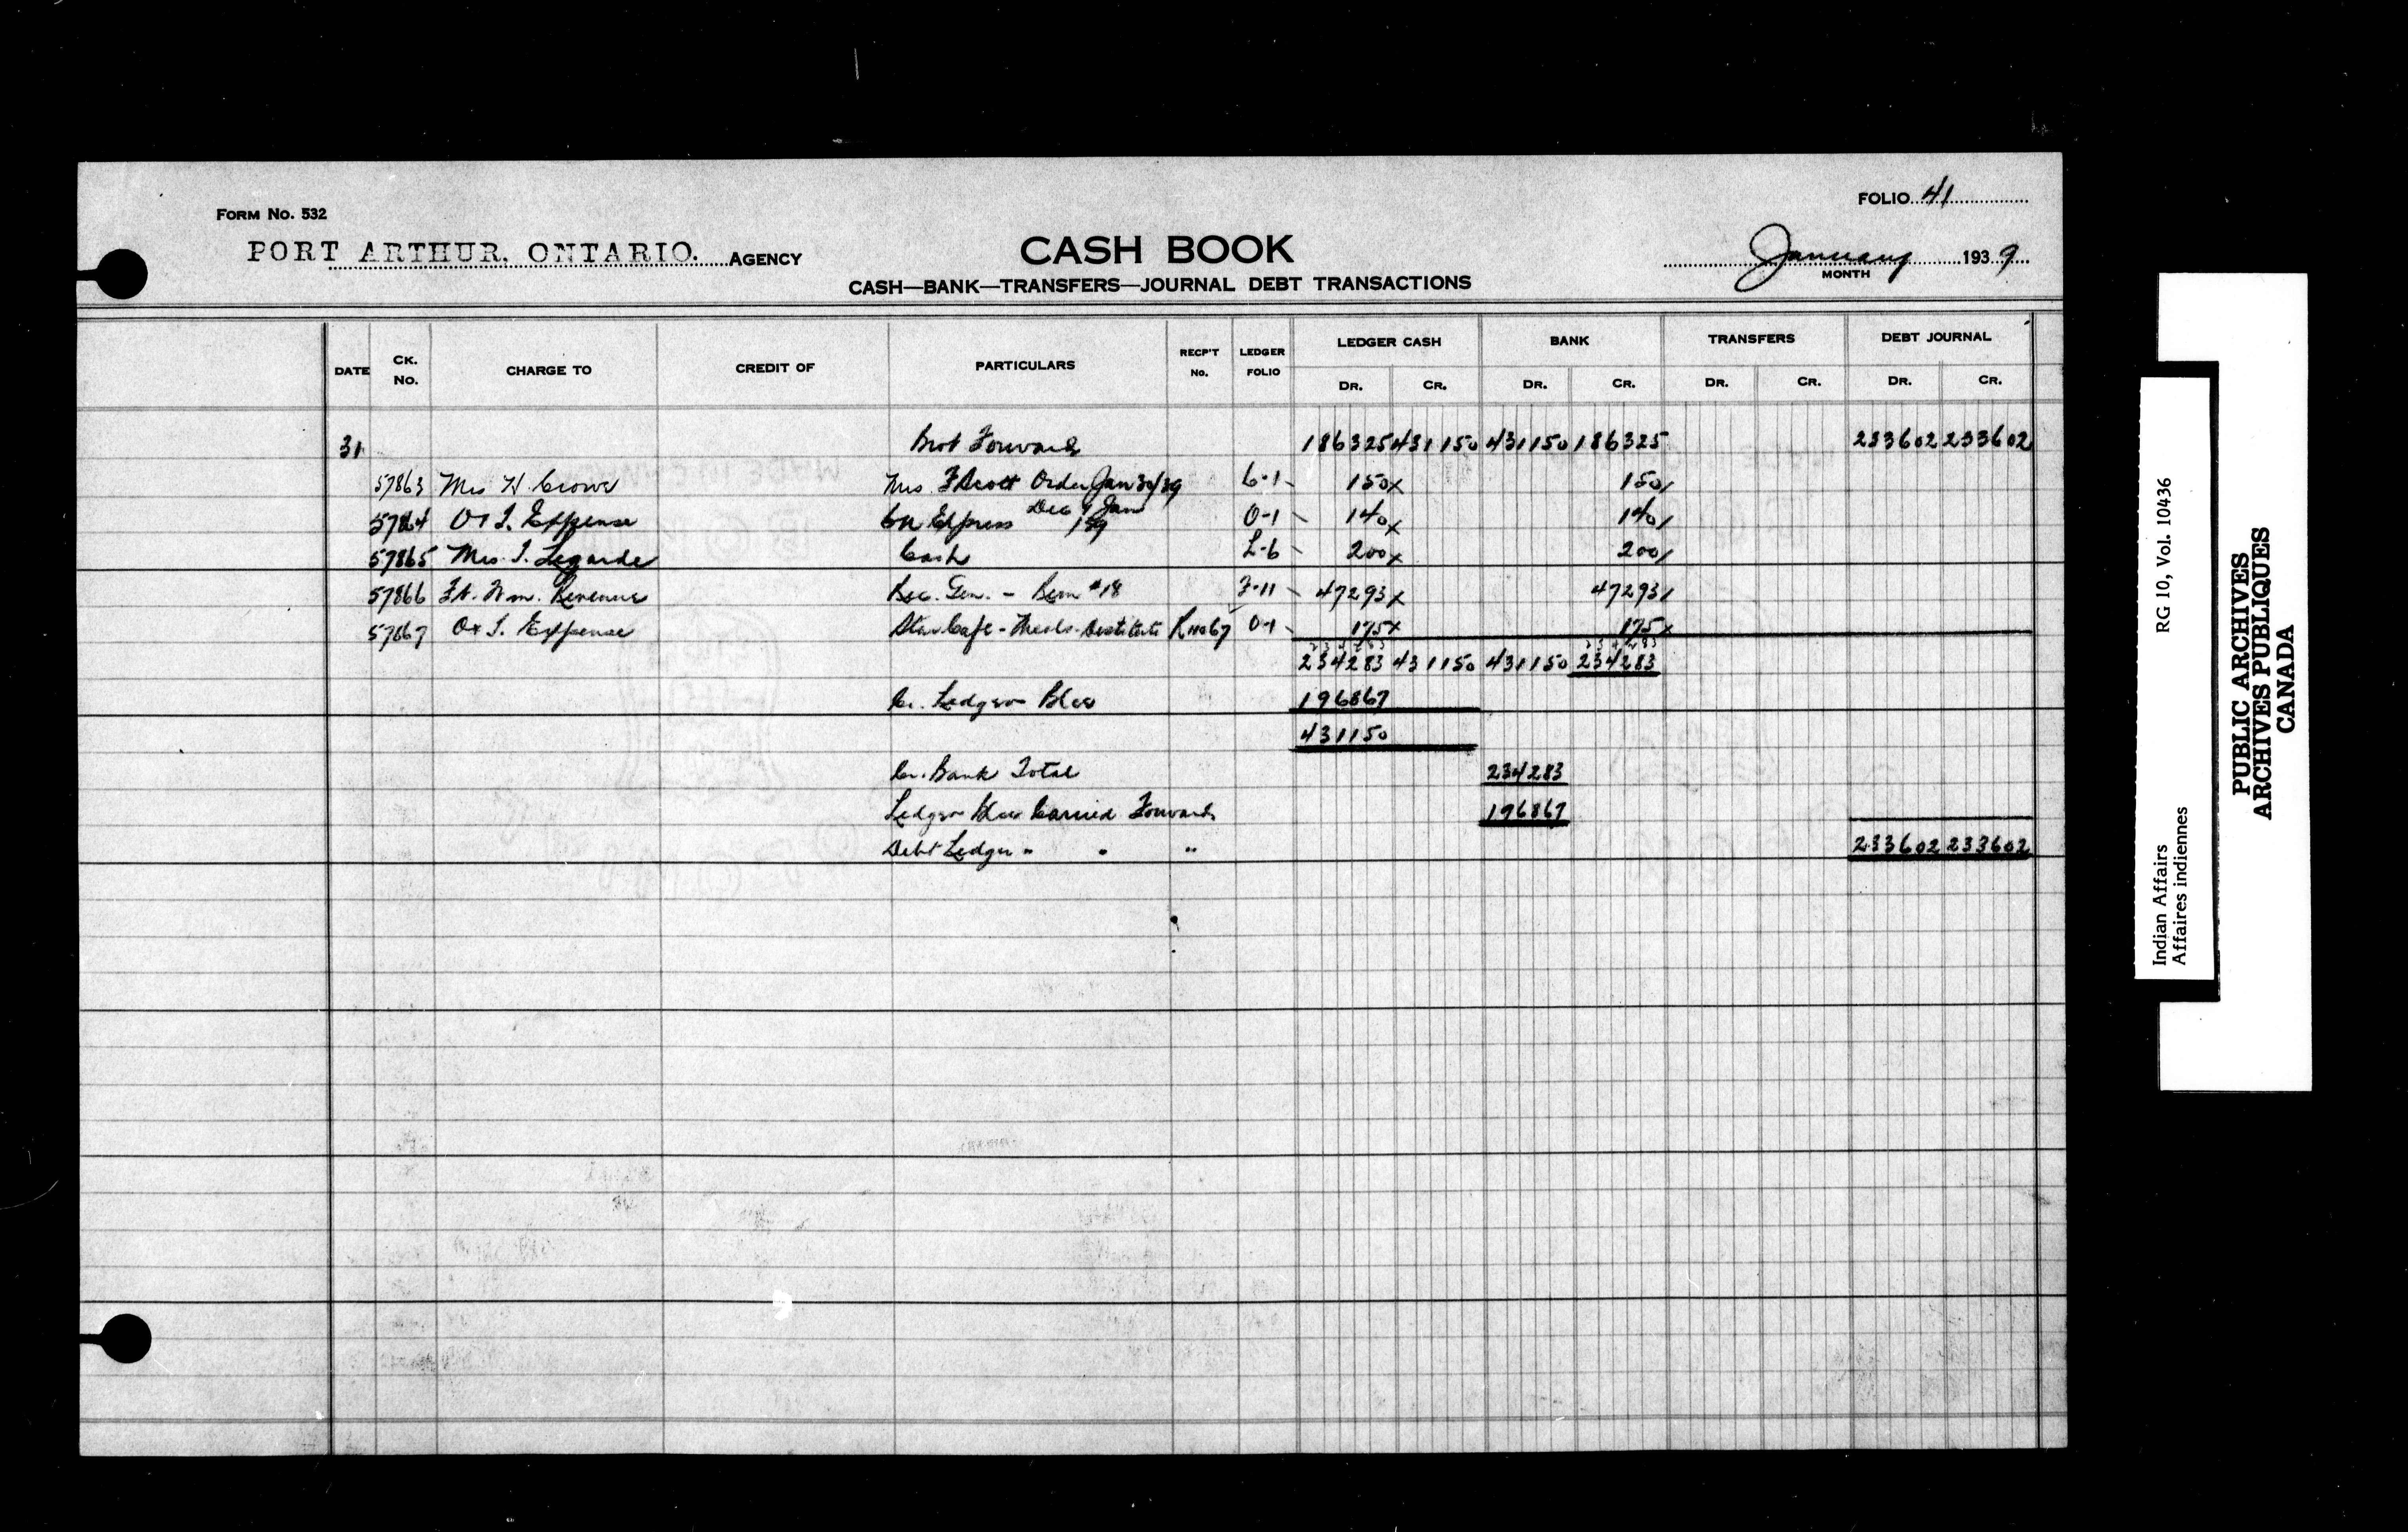 FORM No. 532
FOLIO 41
PORT ARTHUR, ONTARIO. AGENCY
CASH BOOK
January 1939
MONTH
CASH—BANK—TRANSFERS—JOURNAL DEBT TRANSACTIONS
DATE CK. No. CHARGE TO CREDIT OF PARTICULARS RECP'T No. LEDGER FOLIO LEDGER CASH BANK TRANSFERS DEBT JOURNAL
DR. CR. DR. CR. DR. CR. DR. CR.
31 Brot Forward 186325 431150 431150 186325 233602 233602
57863 Mrs H. Crowe Mrs. F Scott Order Jan 30/39 C-1 150x 150/
57864 O I. Expense CN Express Dec & Jan 1/39 O-1 140x 140/
57865 Mrs. I. Legarde Cash L-6 200x 200/
57866 Ft. Wm. Revenue Rec. Gen. - Rem #18 F-11 47293x 47293/
57867 O I. Expense Star Cafe - Meals - Destitute O-1 175x 175x
234283 431150 431150 234283
Cr. Ledger Blce 196867
431150
Cr. Bank Total 234283
Ledger Blce Carried Forward 196867
Debt Ledger " " " 233602 233602
Indian Affairs RG 10, Vol. 10436
Affaires indiennes
PUBLIC ARCHIVES
ARCHIVES PUBLIQUES
CANADA